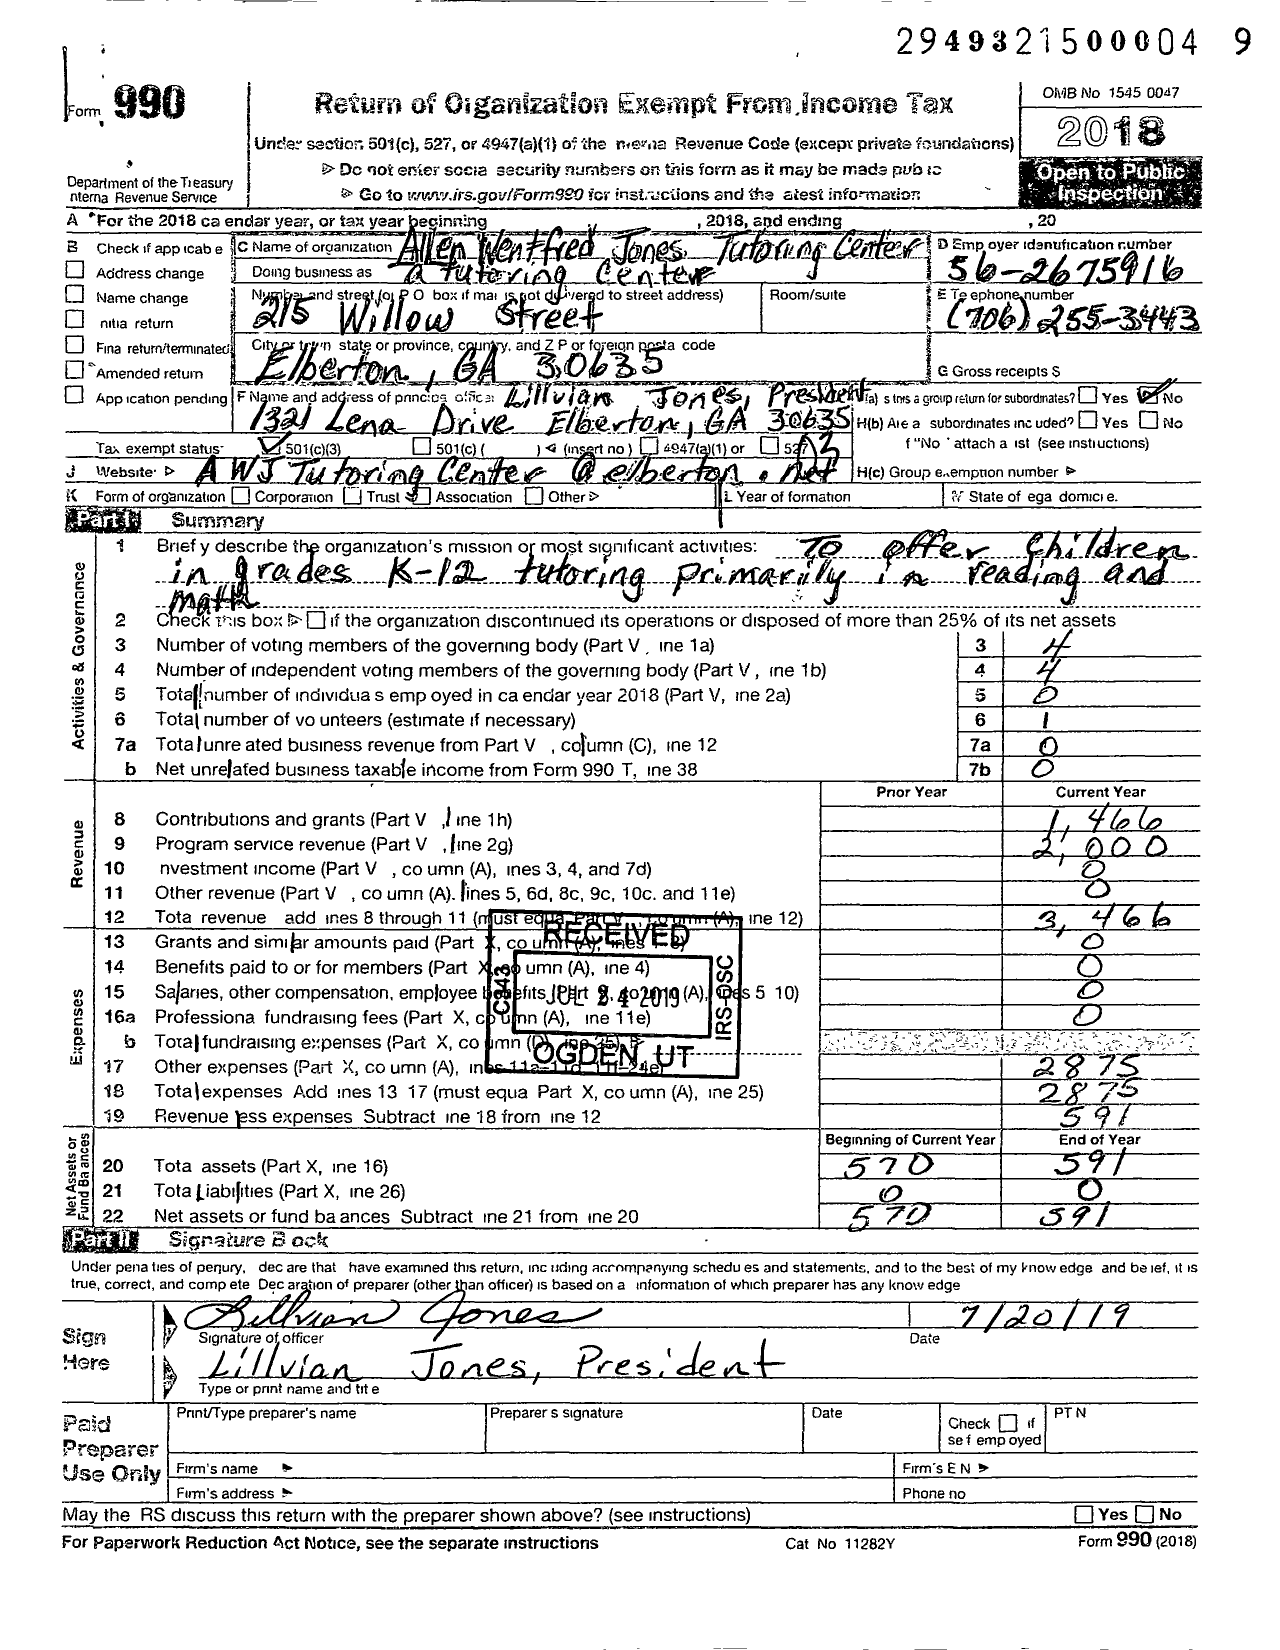 29493215000049
Form 990
Return of Organization Exempt From Income Tax
OMB No 1545 0047
Under section 501(c), 527, or 4947(a)(1) of the nterna Revenue Code (except private foundations)
2018
Do not enter socia security numbers on this form as it may be made pub ic
Open to Public
Department of the Treasury
nterna Revenue Service
Go to www.irs.gov/Form990 for instructions and the atest information
Inspection
A For the 2018 ca endar year, or tax year beginning , 2018, and ending , 20
B Check if applicab e
C Name of organization Allen Wentfred Jones Tutoring Center
D Emp oyer identification number
Address change
Doing business as a tutoring Center
56-2675916
Name change
Number and street (or P O box if mai is not delivered to street address)
Room/suite
E Te ephone number
nitia return
215 Willow Street
(706) 255-3443
Fina return/terminated
City or town state or province, country, and Z P or foreign posta code
Amended return
Elberton, GA 30635
G Gross receipts $
App ication pending
F Name and address of principa officer Lillvian Jones, President
H(a) s this a group return for subordinates? Yes No
1321 Lena Drive Elberton, GA 30635
H(b) Are a subordinates inc uded? Yes No
Tax exempt status: 501(c)(3) 501(c) ( ) (insert no ) 4947(a)(1) or 527
f "No " attach a ist (see instructions)
J Website: AWJ Tutoring Center @ elberton. net
H(c) Group exemption number
K Form of organization Corporation Trust Association Other
L Year of formation
M State of ega domici e.
Part I Summary
1 Brief y describe the organization's mission or most significant activities: To offer Children
in grades K-12 tutoring primarily in reading and
math
2 Check this box if the organization discontinued its operations or disposed of more than 25% of its net assets
3 Number of voting members of the governing body (Part V , ine 1a) 3 4
4 Number of independent voting members of the governing body (Part V , ine 1b) 4 4
5 Total number of individua s emp oyed in ca endar year 2018 (Part V, ine 2a) 5 0
6 Total number of vo unteers (estimate if necessary) 6 1
7a Total unre ated business revenue from Part V , column (C), ine 12 7a 0
b Net unrelated business taxable income from Form 990 T, ine 38 7b 0
Activities & Governance
Prior Year Current Year
8 Contributions and grants (Part V , line 1h) 1,466
9 Program service revenue (Part V , line 2g) 2,000
10 nvestment income (Part V , co umn (A), ines 3, 4, and 7d) 0
11 Other revenue (Part V , co umn (A). lines 5, 6d, 8c, 9c, 10c. and 11e) 0
12 Tota revenue add ines 8 through 11 (must equa Part V co umn (A), ine 12) 3,466
Revenue
13 Grants and similar amounts paid (Part X, co umn (A), ines 1 3) 0
14 Benefits paid to or for members (Part X, co umn (A), ine 4) 0
15 Salaries, other compensation, employee benefits (Part X, co umn (A), ines 5 10) 0
16a Professiona fundraising fees (Part X, co umn (A), ine 11e) 0
b Total fundraising expenses (Part X, co umn (D), ine 25)
17 Other expenses (Part X, co umn (A), ines 11a-11d, 11f-24e) 2875
18 Total expenses Add ines 13 17 (must equa Part X, co umn (A), ine 25) 2875
19 Revenue less expenses Subtract ine 18 from ine 12 591
Expenses
RECEIVED
C343
JUL 24 2019
IRS-OSC
OGDEN, UT
Beginning of Current Year End of Year
20 Tota assets (Part X, ine 16) 570 591
21 Tota Liabilities (Part X, ine 26) 0 0
22 Net assets or fund ba ances Subtract ine 21 from ine 20 570 591
Net Assets or
Fund Ba ances
Part II Signature B ock
Under pena ties of perjury, dec are that have examined this return, inc uding accompanying schedu es and statements, and to the best of my know edge and be ief, it is
true, correct, and comp ete Dec aration of preparer (other than officer) is based on a information of which preparer has any know edge
Sign
Here
Lillvian Jones 7/20/19
Signature of officer Date
Lillvian Jones, President
Type or print name and tit e
Paid
Preparer
Use Only
Print/Type preparer's name
Preparer s signature
Date
Check if
se f emp oyed
PT N
Firm's name
Firm's E N
Firm's address
Phone no
May the RS discuss this return with the preparer shown above? (see instructions) Yes No
For Paperwork Reduction Act Notice, see the separate instructions
Cat No 11282Y
Form 990 (2018)